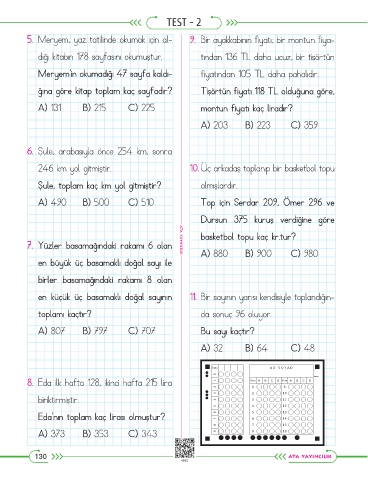 TEST - 2
5. Meryem, yaz tatilinde okumak için al-
dığı kitabın 178 sayfasını okumuştur.
Meryem'in okumadığı 47 sayfa kaldı-
ğına göre kitap toplam kaç sayfadır?
A) 131 B) 215 C) 225
6. Şule, arabasıyla önce 254 km, sonra
246 km yol gitmiştir.
Şule, toplam kaç km yol gitmiştir?
A) 490 B) 500 C) 510
7. Yüzler basamağındaki rakamı 6 olan
en büyük üç basamaklı doğal sayı ile
birler basamağındaki rakamı 8 olan
en küçük üç basamaklı doğal sayının
toplamı kaçtır?
A) 807 B) 797 C) 707
8. Eda ilk hafta 128, ikinci hafta 215 lira
biriktirmiştir.
Eda'nın toplam kaç lirası olmuştur?
A) 373 B) 353 C) 343
9. Bir ayakkabının fiyatı, bir montun fiya-
tından 136 TL daha ucuz, bir tişörtün
fiyatından 105 TL daha pahalıdır.
Tişörtün fiyatı 118 TL olduğuna göre,
montun fiyatı kaç liradır?
A) 203 B) 223 C) 359
10. Üç arkadaş toplanıp bir basketbol topu
almışlardır.
Top için Serdar 209, Ömer 296 ve
Dursun 375 kuruş verdiğine göre
basketbol topu kaç kr.tur?
A) 880 B) 900 C) 980
11. Bir sayının yarısı kendisiyle toplandığın-
da sonuç 96 oluyor.
Bu sayı kaçtır?
A) 32 B) 64 C) 48
AD SOYAD
130
ATA YAYINCILIK